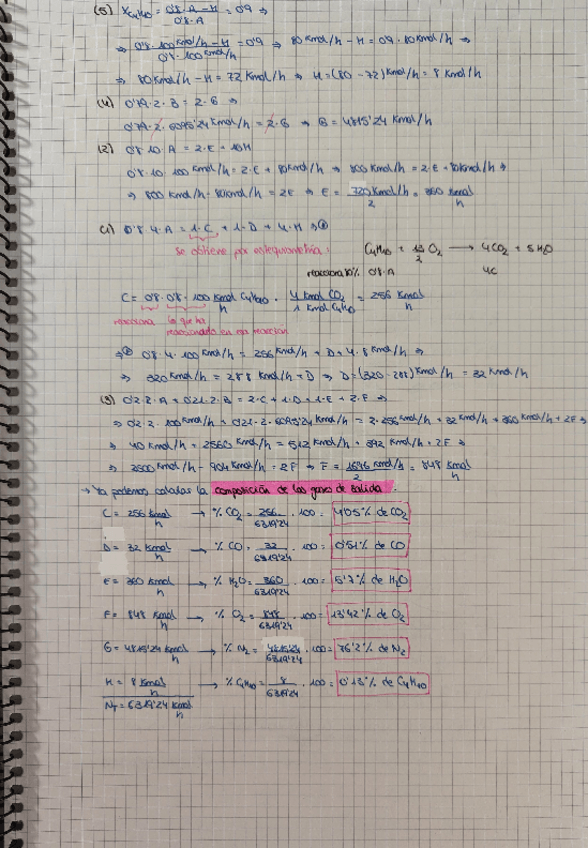 (5) X_C4H10 = (0'8·A - H)/(0'8·A) = 0'9 ⇒
⇒ (0'8·100 Kmol/h - H)/(0'8·100 Kmol/h) = 0'9 ⇒ 80 Kmol/h - H = 0'9·80 Kmol/h ⇒
⇒ 80 Kmol/h - H = 72 Kmol/h ⇒ H = (80-72) Kmol/h = 8 Kmol/h
(4) 0'79·2·B = 2·G ⇒
0'79·2·6095'24 Kmol/h = 2·G ⇒ G = 4815'24 Kmol/h
(2) 0'8·10·A = 2·E + 10H
0'8·10·100 Kmol/h = 2·E + 80 Kmol/h ⇒ 800 Kmol/h = 2·E + 80 Kmol/h ⇒
⇒ 800 Kmol/h - 80 Kmol/h = 2E ⇒ E = (720 Kmol/h)/2 = 360 Kmol/h
(1) 0'8·4·A = 1·C + 1·D + 4·H ⇒
Se obtiene por estequiometría: C4H10 + 13/2 O2 → 4CO2 + 5H2O
reacciona 0'8·A 4C
C = 0'8·0'8·100 Kmol C4H10/h · 4 Kmol CO2/1 Kmol C4H10 = 256 Kmol/h
reacciona lo que ha
reaccionado en esa reacción
⇒ 0'8·4·100 Kmol/h = 256 Kmol/h + D + 4·8 Kmol/h ⇒
⇒ 320 Kmol/h = 288 Kmol/h + D ⇒ D = (320-288) Kmol/h = 32 Kmol/h
(3) 0'2·2·A + 0'21·2·B = 2·C + 1·D + 1·E + 2·F ⇒
⇒ 0'2·2·100 Kmol/h + 0'21·2·6095'24 Kmol/h = 2·256 Kmol/h + 32 Kmol/h + 360 Kmol/h + 2F ⇒
⇒ 40 Kmol/h + 2560 Kmol/h = 512 Kmol/h + 392 Kmol/h + 2F ⇒
⇒ 2600 Kmol/h - 904 Kmol/h = 2F ⇒ F = (1696 Kmol/h)/2 = 848 Kmol/h
→ Ya podemos calcular la composición de los gases de salida.
C = 256 Kmol/h → % CO2 = 256/6319'24 · 100 = 4'05% de CO2
D = 32 Kmol/h → % CO = 32/6319'24 · 100 = 0'51% de CO
E = 360 Kmol/h → % H2O = 360/6319'24 · 100 = 5'7% de H2O
F = 848 Kmol/h → % O2 = 848/6319'24 · 100 = 13'42% de O2
G = 4815'24 Kmol/h → % N2 = 4815'24/6319'24 · 100 = 76'2% de N2
H = 8 Kmol/h → % C4H10 = 8/6319'24 · 100 = 0'13% de C4H10
N_T = 6319'24 Kmol/h